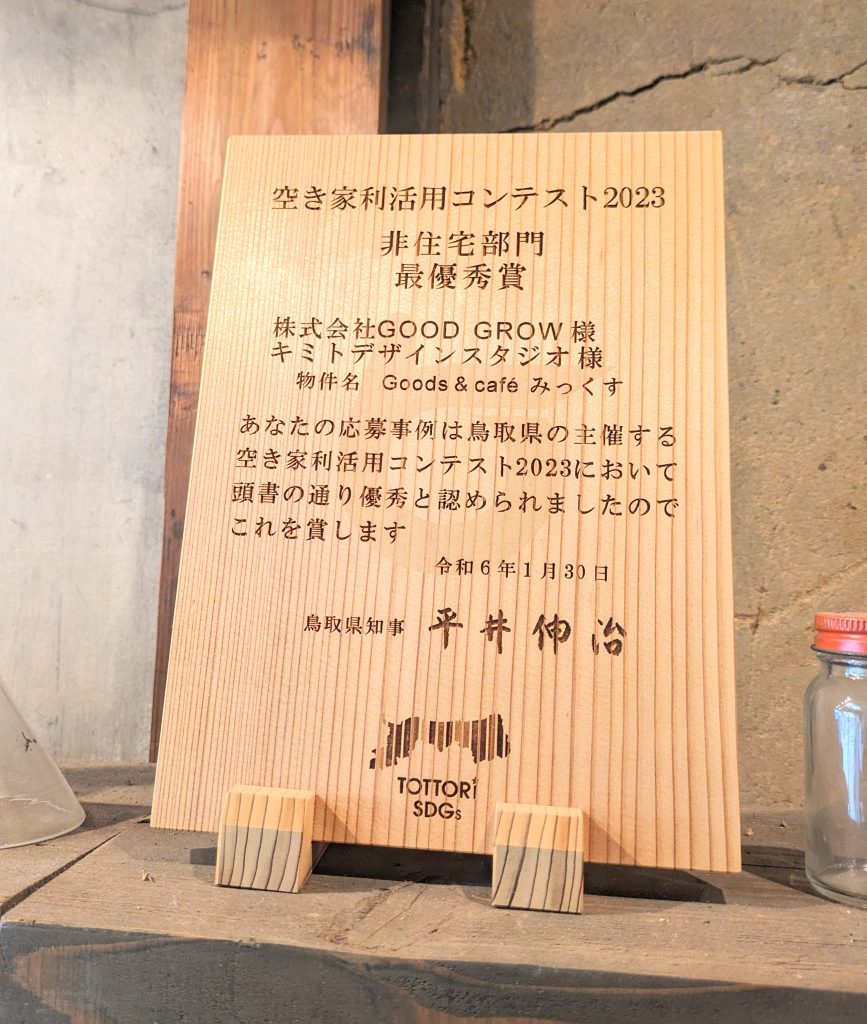 空き家利活用コンテスト2023
非住宅部門
最優秀賞
株式会社GOOD GROW 様
キミトデザインスタジオ様
物件名 Goods & café みっくす
あなたの応募事例は鳥取県の主催する
空き家利活用コンテスト2023において
頭書の通り優秀と認められましたので
これを賞します
令和6年1月30日
鳥取県知事 平井伸治
TOTTORi
SDGs